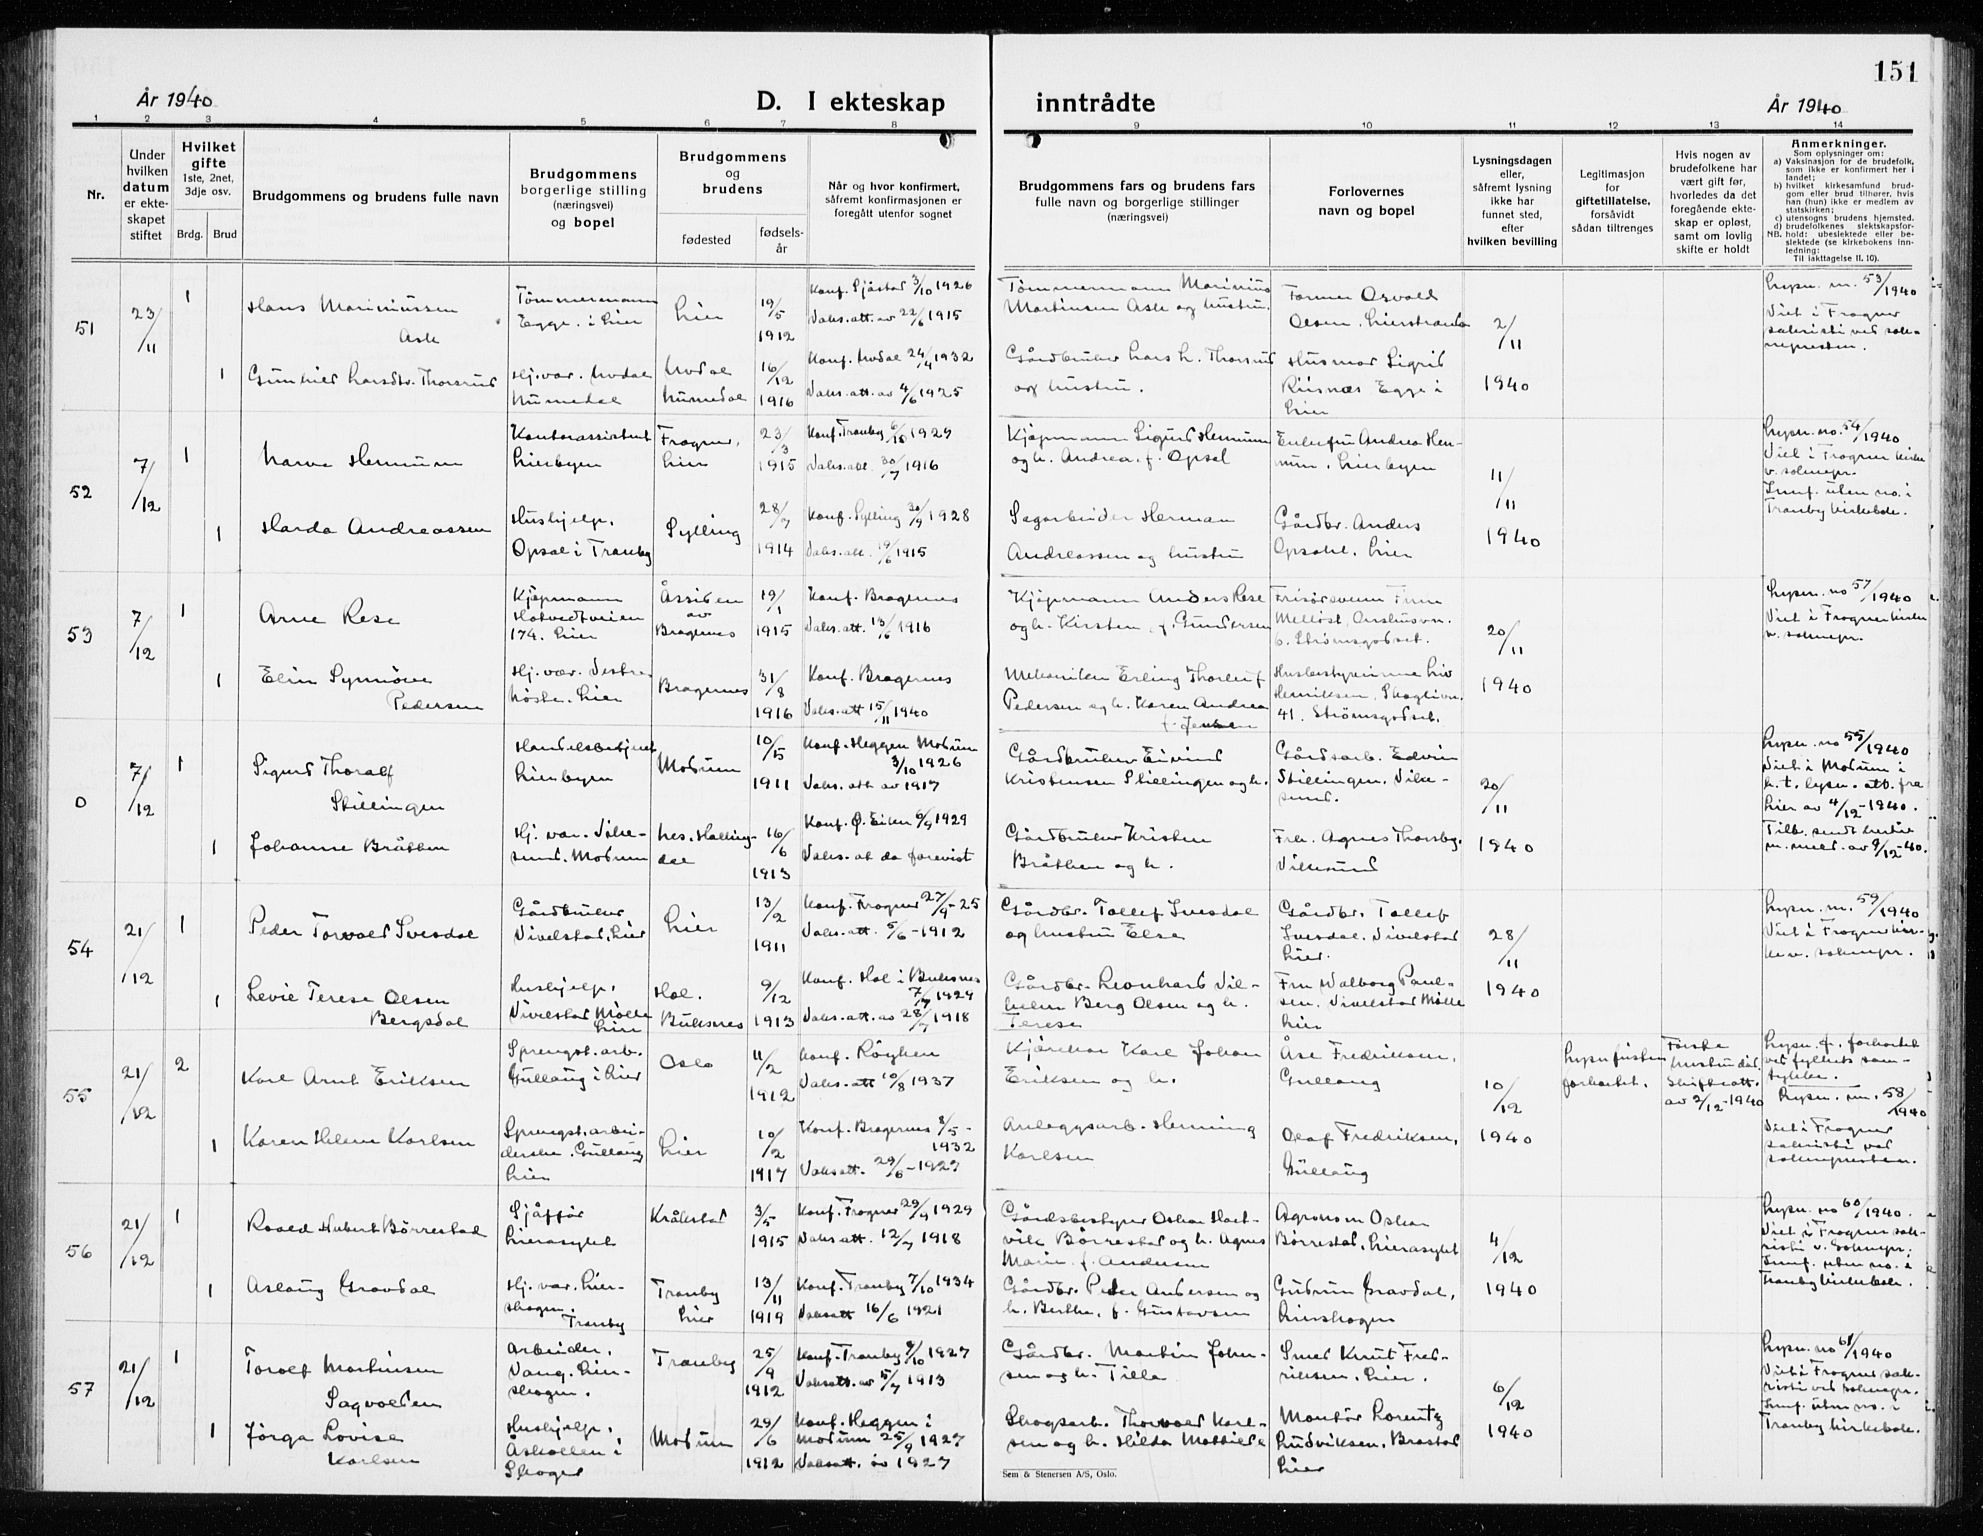 151
År 1940
D. I ekteskap inntrådte
År 1940
1 2 3 4 5 6 7 8 9 10 11 12 13 14
Nr.
Under hvilken datum er ekteskapet stiftet
Hvilket gifte 1ste, 2net, 3dje osv.
Brdg. Brud
Brudgommens og brudens fulle navn
Brudgommens borgerlige stilling (næringsvei) og bopel
Brudgommens og brudens
fødested
fødselsår
Når og hvor konfirmert, såfremt konfirmasjonen er foregått utenfor sognet
Brudgommens fars og brudens fars fulle navn og borgerlige stillinger (næringsvei)
Forlovernes navn og bopel
Lysningsdagen eller, såfremt lysning ikke har funnet sted, efter hvilken bevilling
Legitimasjon for giftetillatelse, forsåvidt sådan tiltrenges
Hvis nogen av brudefolkene har vært gift før, hvorledes da det foregående ekteskap er opløst, samt om lovlig skifte er holdt
Anmerkninger.
Som oplysninger om:
a) Vaksinasjon for de brudefolk, som ikke er konfirmert her i landet;
b) hvilket kirkesamfund brudgom eller brud tilhører, hvis han (hun) ikke er medlem av statskirken;
c) utensogns brudens hjemsted.
d) brudefolkenes slektskapsforhold: ubeslektede eller beslektede (se kirkebokens innledning:
NB.
Til iakttagelse II. 10).
51
23/11
1
Hans Marinussen Ask
Tømmermann Egge i Lier
Lier
19/5 1912
Konf. Sjåstad 3/10 1926
Vaks.att. av 22/6 1915
Tømmermann Marinius Martinsen Ask og hustru.
Former Osvald Olsen, Lierstranda
2/11 1940
Lysn. nr. 53/1940
Viet i Frogner sakristi ved soknepresten.
1
Gunhild Larsdtr. Thorsrud
Hj.vær. Uvdal Numedal
Uvdal Numedal
16/12 1916
Konf. Uvdal 24/4 1932
Vaks.att. av 4/6 1925
Gårdbruker Lars L. Thorsrud og hustru.
Husmor Sigrid Riisnæs Egge i Lier
52
7/12
1
Narve Hennum
Kontorassistent Lierbyen
Frogner, Lier
23/3 1915
Konf. Tranby 6/10 1929
Vaks.att. 30/7 1916
Kjøpmann Sigurd Hennum og h. Andrea f. Opsal
Enkefru Andrea Hennum, Lierbyen
11/11 1940
Lysn. no. 54/1940
Viet i Frogner kirke v. soknepr.
Innf. uten no. i Tranby kirkebok.
1
Harda Andreassen
Hushjelp, Opsal i Tranby
Sylling
28/7 1914
Konf. Sylling 30/9 1928
Vaks.att. 19/6 1915
Sagarbeider Herman Andreassen og hustru
Gårdbr. Anders Opsahl, Lier
53
7/12
1
Arne Rese
Kjøpmann Hotvedtveien 174. Lier
Åssiden av Bragernes
19/1 1915
Konf. Bragernes
Vaks.att. 13/6 1916
Kjøpmann Anders Rese og h. Kirsten f. Gundersen
Frisørsvenn Finn Melløst, Anshusvn. 6. Strømsgodset.
20/11 1940
Lysn. no 57/1940
Viet i Frogner kirke v. soknepr.
1
Elin Synnøve Pedersen
Hj.vær. Vestre, Lier
Bragernes
31/8 1916
Konf. Bragernes
Vaks.att 15/11 1940
Mekaniker Erling Thorleif Pedersen og h. Karen Andrea f. Jensen
Husbestyrerinne Liv Henriksen, 41. Strømsgodset.
0
7/12
1
Sigurd Thoralf Skillingen
Handelsbetjent Lierbyen
Modum
10/5 1911
Konf. Heggen Modum 3/10 1926
Vaks.att av 1917
Gårdbruker Eivind Kristensen Skillingen og h.
Gårdsarb. Edvin Skillingen, Vikesund.
20/11 1940
Lysn. no 55/1940
Viet i Modum i h. t. lysn. att. fra Lier av 4/12-1940.
Tilb. sendt m. med. av 9/12-40.
1
Johanne Bråthen
Hj. vær. Vikesund. Modum
Nes. Hallingdal
16/6 1913
Konf. Ø. Eiker 6/9 1929
Vaks.at da forevist
Gårdbruker Kristen Bråthen og h.
Frk. Agnes Thorsby, Vikesund
54
21/12
1
Peder Torvald Svesdal
Gårdbruker Vivelstad, Lier
Lier
13/2 1911
Konf. Frogner 27/9-25
Vaks.att. 5/6-1912
Gårdbr. Tollef Svesdal og hustru Else
Gårdbr. Tollef Svesdal. Vivelstad Lier.
28/11 1940
Lysn. nr. 59/1940
Viet i Frogner kirke v. soknepr.
1
Levie Terese Olsen Bergsdal
Hushjelp, Vivelstad Mølle Lier
Hol. Buksnes
9/12 1913
Konf. Hol i Buksnes 7/7 1929
Vaks.att. av 28/7 1918
Gårdbr. Leonhard Vilhelm Berg Olsen og h. Terese
Fru Walborg Paulsen, Vivelstad Mølle Lier
55
21/12
2
Karl Arnt Eriksen
Sprengst.arb. Gullaug i Lier
Oslo
11/2 1912
Konf. Røyken
Vaks.att 10/8 1937
Kjørekar Karl Johan Eriksen og h.
Åse Fredriksen, Gullaug
10/12 1940
Lysn.fristen forkortet.
Første hustru død. Skifteatt. av 2/12-1940
Lysn. f. forkortet ved fylkets samtykke.
Lysn. nr. 58/1940
Viet i Frogner sakristi ved soknepresten.
1
Karen Helene Karlsen
Sprengst.arbeiderske. Gullaug Lier
Lier
10/2 1917
Konf. Bragernes 8/5-1932
Vaksatt. 29/6-1927
Anleggsarb. Henning Karlsen
Olaf Fredriksen, Gullaug
56
21/12
1
Roald Hubert Børrestad
Sjåfør Lierasylet
Kråkstad
3/5 1915
Konf. Frogner 29/9 1929
Vaks att. 12/7 1918
Gårdsbestyrer Oskar Hartvik Børrestad og h. Agnes Marie f. Andersen
Agronom Oskar Børrestad, Lierasylet
4/12 1940
Lysn. no 60/1940.
Viet i Frogner sakristi v. Soknepr.
Innf. uten no. i Tranby kirkebok.
1
Aslaug Gravdal
Hj. vær. Lierskogen. Tranby
Tranby Lier
13/11 1919
Konf. Tranby 7/10 1934
Vaksatt 16/6 1921
Gårdbr. Peder Andersen og h. Berthe, f. Gustavsen
Gudrun Gravdal, Lierskogen
57
21/12
1
Torolf Martinsen Sagvolden
Arbeider, Vang, Lierskogen.
Tranby
25/9 1912
Konf. Tranby 9/10 1927
Vaksatt. av 5/7 1913
Gårdbr. Martin Johnsen og h. Tilla
Smed Knut Fredriksen, Lier.
6/12 1940
Lysn. no 61/1940
Viet i Frogner sakristi ved soknepr.
Innf. uten no. i Tranby kirkebok.
1
Jørga Lovise Karlsen
Hushjelp, Åskollen i Skoger
Modum
29/6 1912
Konf. Heggen i Modum 25/9 1927
Vaksatt. av 1927
Skogsarb. Thorvald Karlsen og h. Hilda Mathilde
Montør Lorentz Ludviksen, Brastad Lier
Sem & Stenersen A/S, Oslo.